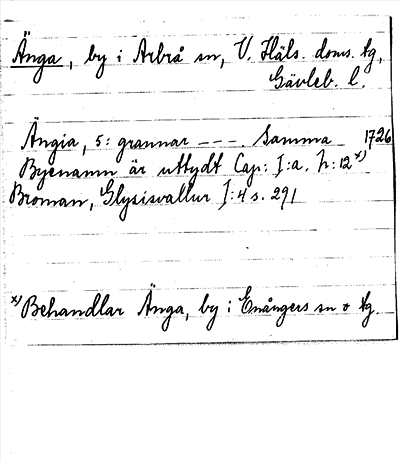 Änga, by i Arbrå sn, V. Häls. doms. tg,
Gävleb. l.
Ängia, 5: grannar - - - . Samma 1726
Byenamn är uttydt Cap: I:a. h: 12 x)
Broman, Glysisvallur I:4 s. 291
x) Behandlar Änga, by i Enångers sn o tg.